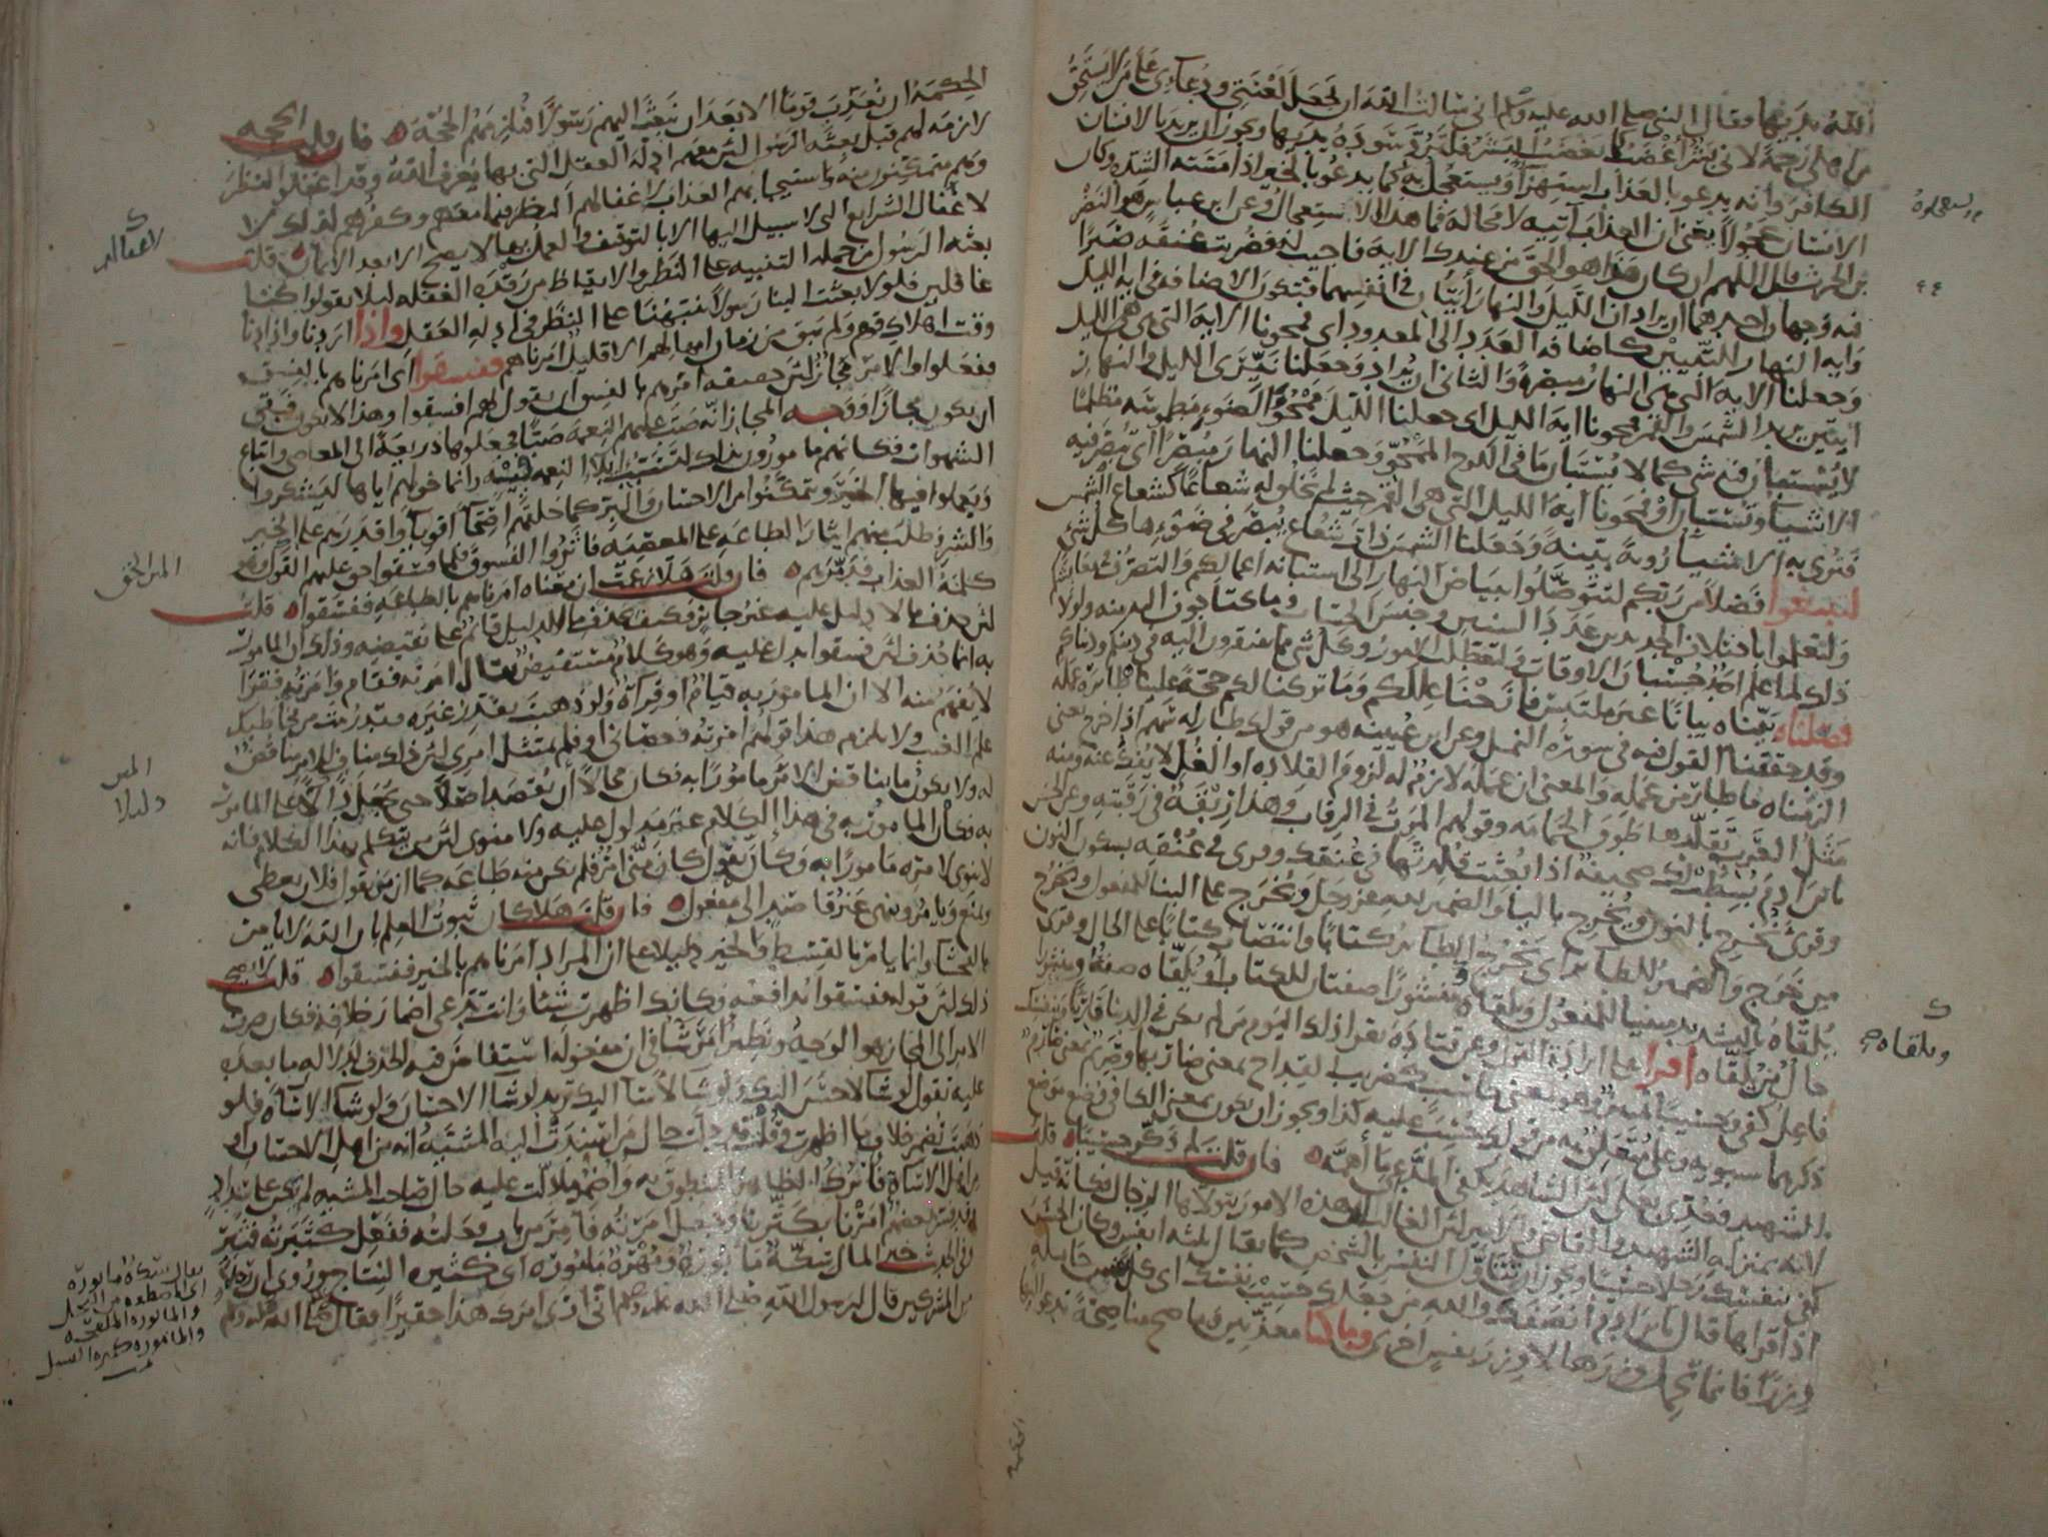 الله يديها فقال النبي صلى الله عليه وسلم اني سالت الله ان يجعل لعنتي ودعاءي على من لا يستحق
من اهلي رحمة لاني بشر اغضب كما يغضب البشر فلترد سودة يديها ويجوز ان يريد بالانسان
الكافر وانه يدعو بالعذاب استهزا ويستعجل به كما يدعو بالخير اذا مسته الشدة وكان
الانسان عجولا يعني ان العذاب آتيه لا محالة فما هذا الاستعجال وعن ابن عباس هو النضر
بن الحرث قال اللهم ان كان هذا هو الحق من عندك الاية فاجيب له فضربت عنقه صبرا
فيه وجهان احدهما ان يراد ان الليل والنهار آيتان في انفسهما فتكون الاضافة في اية الليل
واية النهار للتبيين كاضافة العدد الى المعدود اي فمحونا الاية التي هي الليل
وجعلنا الاية التي هي النهار مبصرة والثاني ان يراد وجعلنا نيري الليل والنهار
آيتين يريد الشمس والقمر فمحونا اية الليل اي جعلنا الليل ممحو الضوء مطموسه مظلما
لا يستبان فيه شي كما لا يستبان ما في اللوح الممحو وجعلنا النهار مبصرا اي يبصر فيه
الاشيا وتستبان او فمحونا آية الليل التي هي القمر حيث لم يخلق له شعاعا كشعاع الشمس
فترى به الاشيا رؤية بينة وجعلنا الشمس ذات شعاع يبصر في ضوءها كل شي
لتبتغوا فضلا من ربكم لتتوصلوا ببياض النهار الى استبانة اعمالكم والتصرف في معايشكم
ولتعلموا باختلاف الجديدين عدد السنين وجنس الحساب وما تحتاجون اليه منه ولولا
ذلك لما علم احد حسبان الاوقات ولتعطلت الامور وكل شي مما تفتقرون اليه في دينكم ودنياكم
فصلناه بيناه بيانا غير ملتبس فازحنا عللكم وما تركنا لكم حجة علينا طائره عمله
وقد حققنا القول فيه في سورة النمل وعن ابن عيينة هو من قولك طار له سهم اذا خرج يعني
الزمناه ما طار من عمله والمعنى ان عمله لازم له لزوم القلادة او الغل لا يفك عنه ومنه
مثل العرب تقلدها طوق الحمامة وقولهم الموت في الرقاب وهذا ربقة في رقبته وعن الحسن
يا ابن ادم بسطت لك صحيفة اذا بعثت قلدتها في عنقك وقرى في عنقه بسكون النون
وقرى نخرج بالنون ويخرج باليا والضمير لله عز وجل ويخرج على البنا للمفعول ويخرج
من خرج والضمير للطائر اي يخرج الطائر كتابا وانتصاب كتابا على الحال وقرى
يلقاه بالتشديد مبنيا للمفعول ويلقاه منشورا صفتان للكتاب او يلقاه صفة ومنشورا
حال من يلقاه اقرا على ارادة القول وعن قتادة يقرا ذلك اليوم من لم يكن في الدنيا قاريا وبنفسك
فاعل كفى وحسيبا تمييز وهو بمعنى حاسب كضريب القداح بمعنى ضاربها وصريم بمعنى صارم
ذكرهما سيبويه وعلى متعلق به من قولك حسب عليه كذا ويجوز ان يكون بمعنى الكافي وضع موضع
الشهيد فعدي بعلى لان الشاهد يكفي المدعي ما اهمه فان قلت لم ذكر حسيبا قلت
لانه بمنزلة الشهيد والقاضي والامير لان الغالب ان هذه الامور يتولاها الرجال فكانه قيل
كفى بنفسك رجلا حسيبا ويجوز ان تتاول النفس بالشخص كما يقال ثلثة انفس وكان الحسن
اذا قراها قال يا ابن ادم انصفك والله من جعلك حسيب نفسك اي كل نفس حاملة
وزرا فانما تحمل وزرها لا وزر نفس اخرى وما كنا معذبين وما صح منا صحة تدعو اليها
ويلقاه
الحكمة
الحكمة ان نعذب قوما الا بعد ان نبعث اليهم رسولا فنلزمهم الحجة فان قلت الحجة
لازمة لهم قبل بعثة الرسول لان معهم ادلة العقل التي بها يعرف الله وقد اغفلوا النظر
وهم متمكنون منه واستيجابهم العذاب لاغفالهم النظر فيما معهم وكفرهم لذلك لا
لاغفال الشرايع التي لا سبيل اليها الا بالتوقيف والعمل بها لا يصح الا بعد الايمان قلت
بعثة الرسول من جملة التنبيه على النظر والايقاظ من رقدة الغفلة ليلا يقولوا كنا
غافلين فلولا بعثت الينا رسولا ينبهنا على النظر في ادلة العقل واذا اردنا واذا دنا
وقت اهلاك قوم ولم يبق من زمان امهالهم الا قليل امرناهم ففسقوا اي امرناهم بالفسق
ففعلوا والامر مجاز لان حقيقة امرهم بالفسق ان يقول لهم افسقوا وهذا لا يكون فبقي
ان يكون مجازا ووجه المجاز انه صب عليهم النعمة صبا فجعلوها ذريعة الى المعاصي واتباع
الشهوات فكانهم مامورون بذلك لتسبب ايلاء النعمة فيه وانما خولهم اياها ليشكروا
ويعملوا فيها الخير ويتمكنوا من الاحسان والبر كما خلقهم اصحا اقويا واقدرهم على الخير
والشر وطلب منهم ايثار الطاعة على المعصية فاثروا الفسوق فلما فسقوا حق عليهم القول وهو
كلمة العذاب فدمرهم فان قلت هلا زعمت ان معناه امرناهم بالطاعة ففسقوا قلت
لان حذف ما لا دليل عليه غير جايز فكيف يحذف ما الدليل قائم على نقيضه وذلك ان المامور
به انما حذف لان فسقوا يدل عليه وهو كلام مستفيض يقال امرته فقام وامرته فقرا
لا يفهم منه الا ان المامور به قيام او قراة ولو ذهبت تقدر غيره فقد رمت من مخاطبك
علم الغيب ولا يلزم هذا قولهم امرته فعصاني او فلم يمتثل امري لان ذلك مناف للامر مناقض
له ولا يكون ما يناقض الامر مامورا به فكان محالا ان يقصد اصلا حتى يجعل دالا على المامور
به فكان المامور به في هذا الكلام غير مدلول عليه ولا منوي لان من يتكلم بهذا الكلام فانه
لا ينوي لامره مامورا به وكانه يقول كان مني امر فلم يكن منه طاعة كما ان من يقول فلان يعطي
ويمنع ويامر وينهى غير قاصد الى مفعول فان قلت هلا كان ثبوت العلم بان الله لا يامر
بالفحشا وانما يامر بالقسط والخير دليلا على ان المراد امرناهم بالخير ففسقوا قلت لا يصح
ذلك لان قوله ففسقوا يدافعه فكانك اظهرت شيا وانت تدعي اضمار خلافه فكان صرف
الامر الى المجاز هو الوجه ونظير امر شا في ان مفعوله استفاض فيه الحذف لدلالة ما بعده
عليه تقول لو شا لاحسن اليك ولو شا لاسا اليك تريد لو شا الاحسان ولو شا الاساة فلو
ذهبت تضمر خلاف ما اظهرت وقلت قد دلت حال من اسندت اليه المشية انه من اهل الاحسان او
من اهل الاساة فاترك الظاهر المنطوق به واضمر ما دلت عليه حال صاحب المشية لم تكن على سداد
وقد فسر بعضهم امرنا بكثرنا وجعل امرته فامر من باب فعلته ففعل كثبرته فثبر
وفي الحديث خير المال سكة مابورة ومهرة مامورة اي كثيرة النتاج وروي ان رجلا
من المشركين قال لرسول الله صلى الله عليه وسلم اني ارى امرك هذا حقيرا فقال صلى الله عليه وسلم
يقال سكة مابورة
اي مصطفة من النخل
والمابورة الملقحة
والمامورة كثيرة النسل